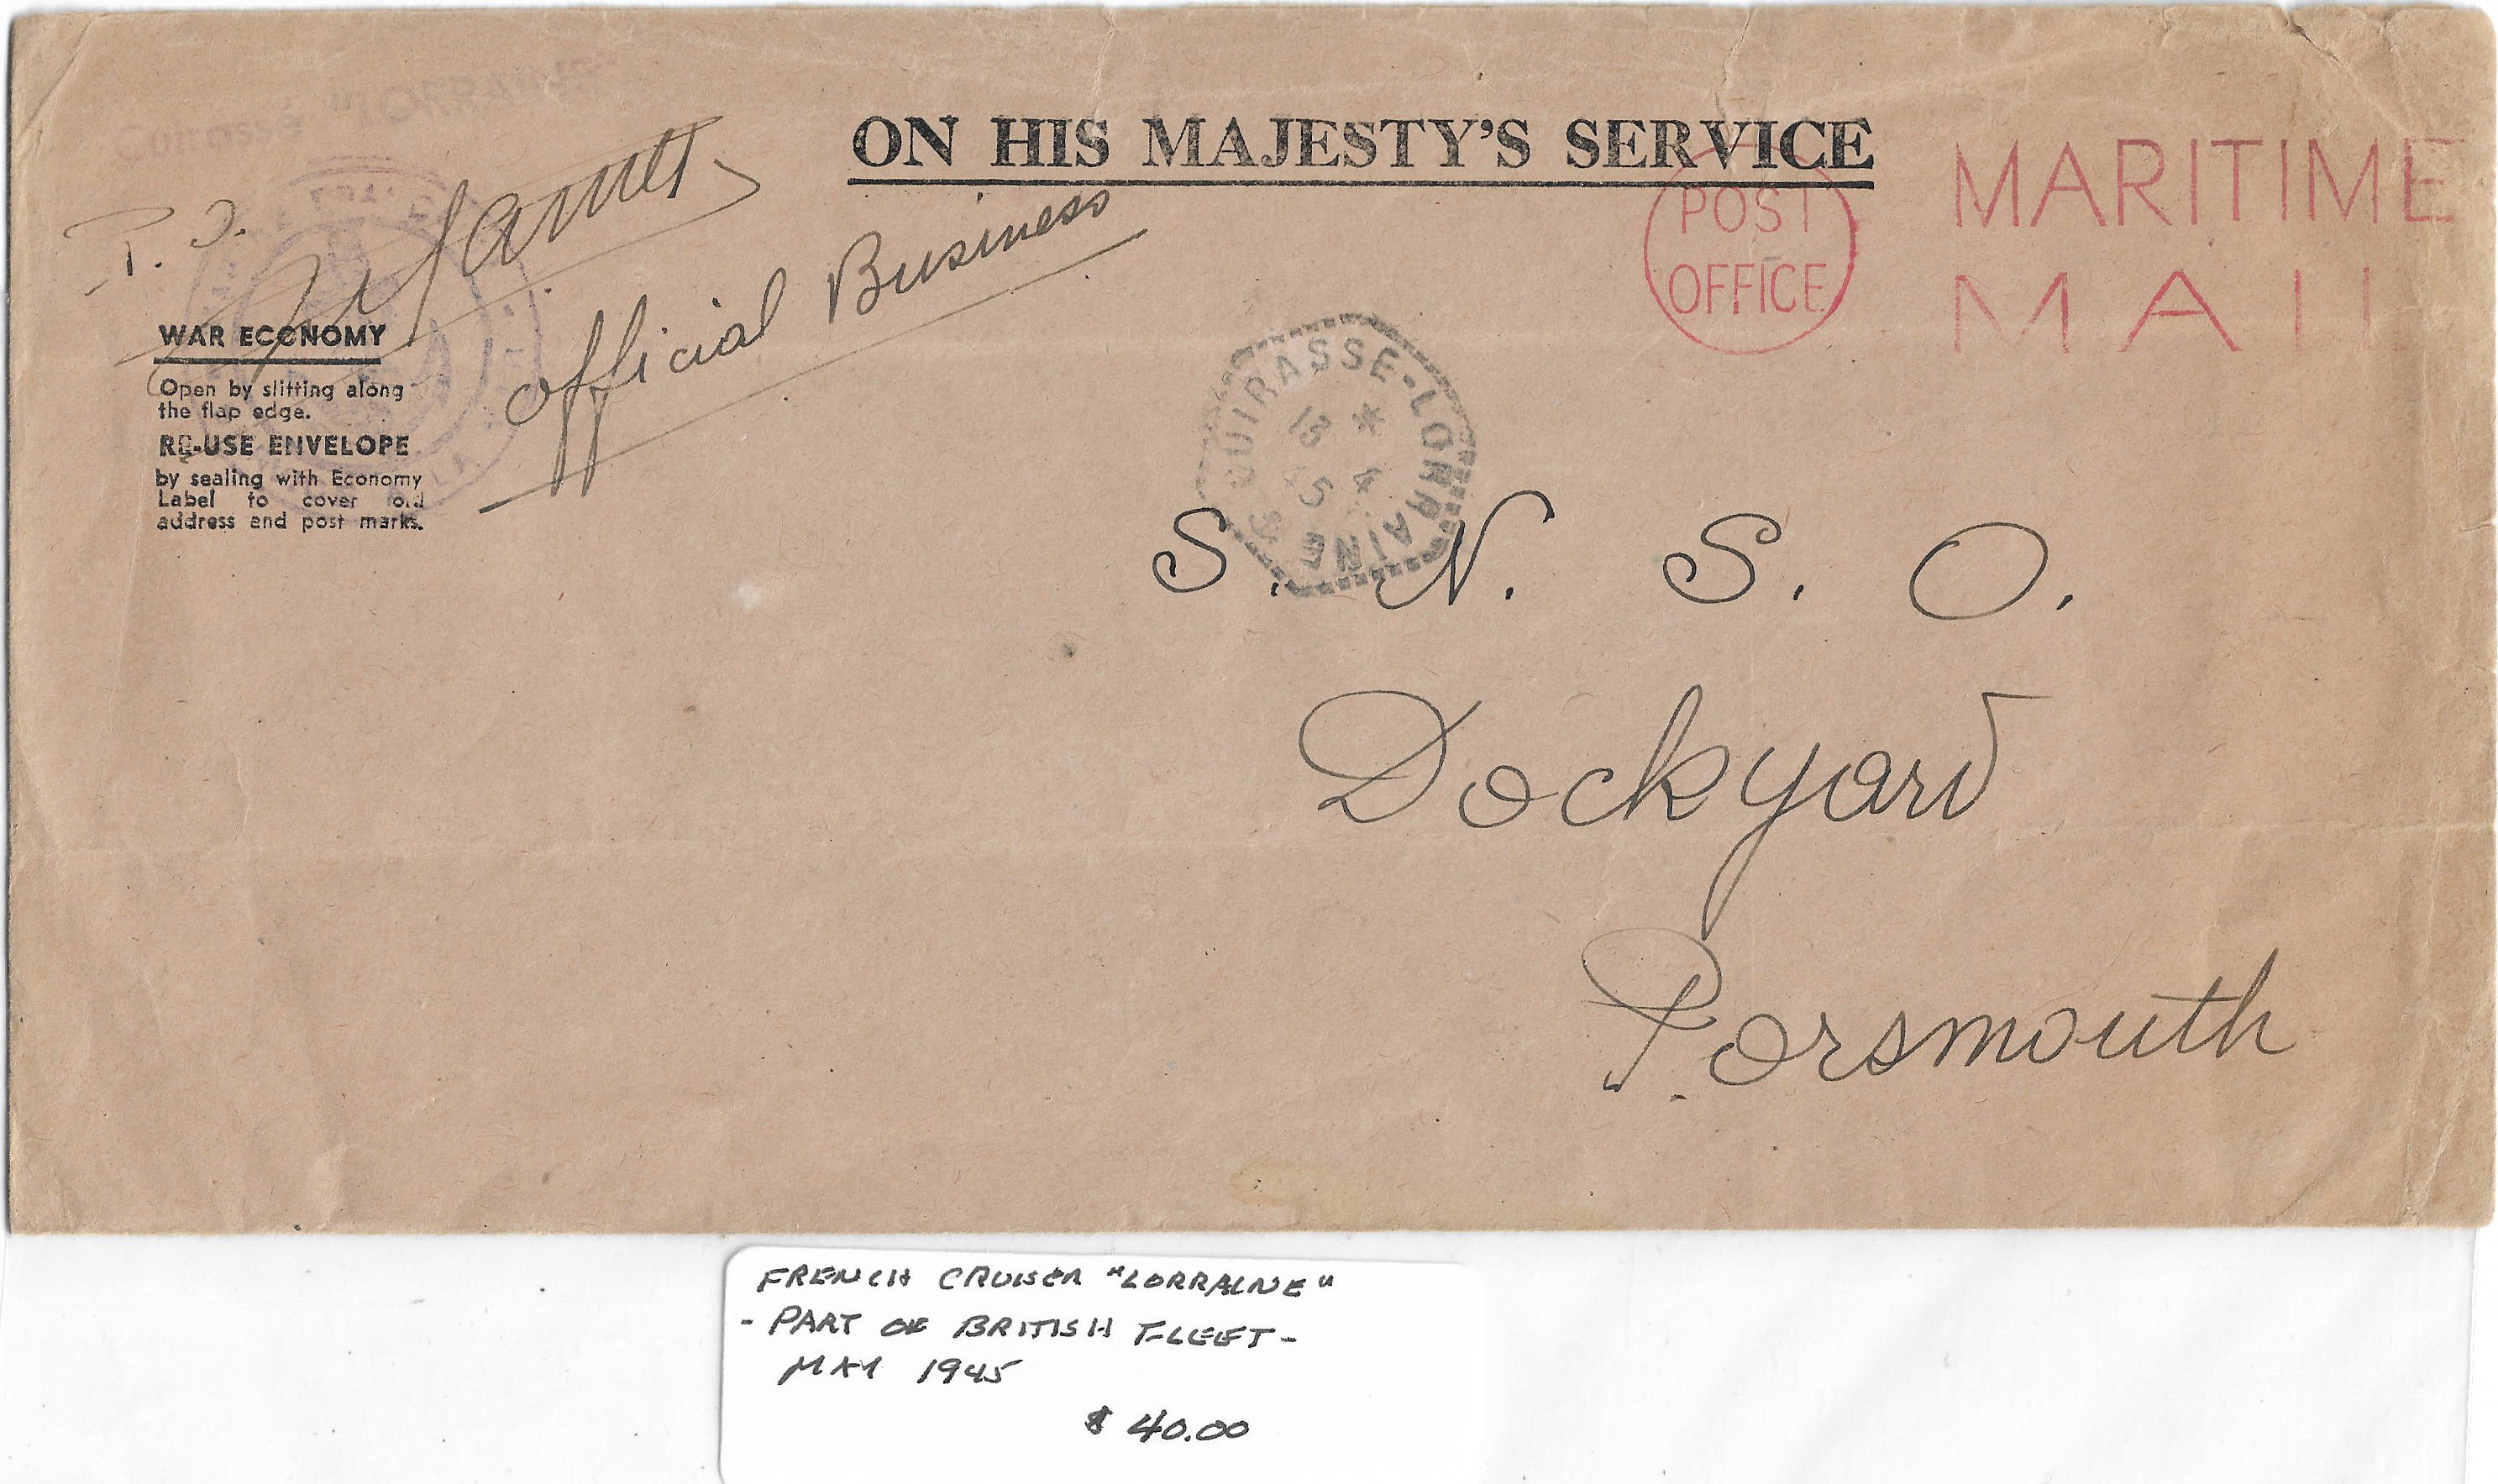 Cuirassé "LORRAINE"
ON HIS MAJESTY'S SERVICE
POST
OFFICE
MARITIME
MAIL
Official Business
WAR ECONOMY
Open by slitting along
the flap edge.
RE-USE ENVELOPE
by sealing with Economy
Label to cover old
address and post marks.
CUIRASSE-LORRAINE
13 *
45 4
S. N. S. O.
Dockyard
Porsmouth
FRENCH CRUISER "LORRAINE"
- PART OF BRITISH FLEET -
MAY 1945
$ 40.00